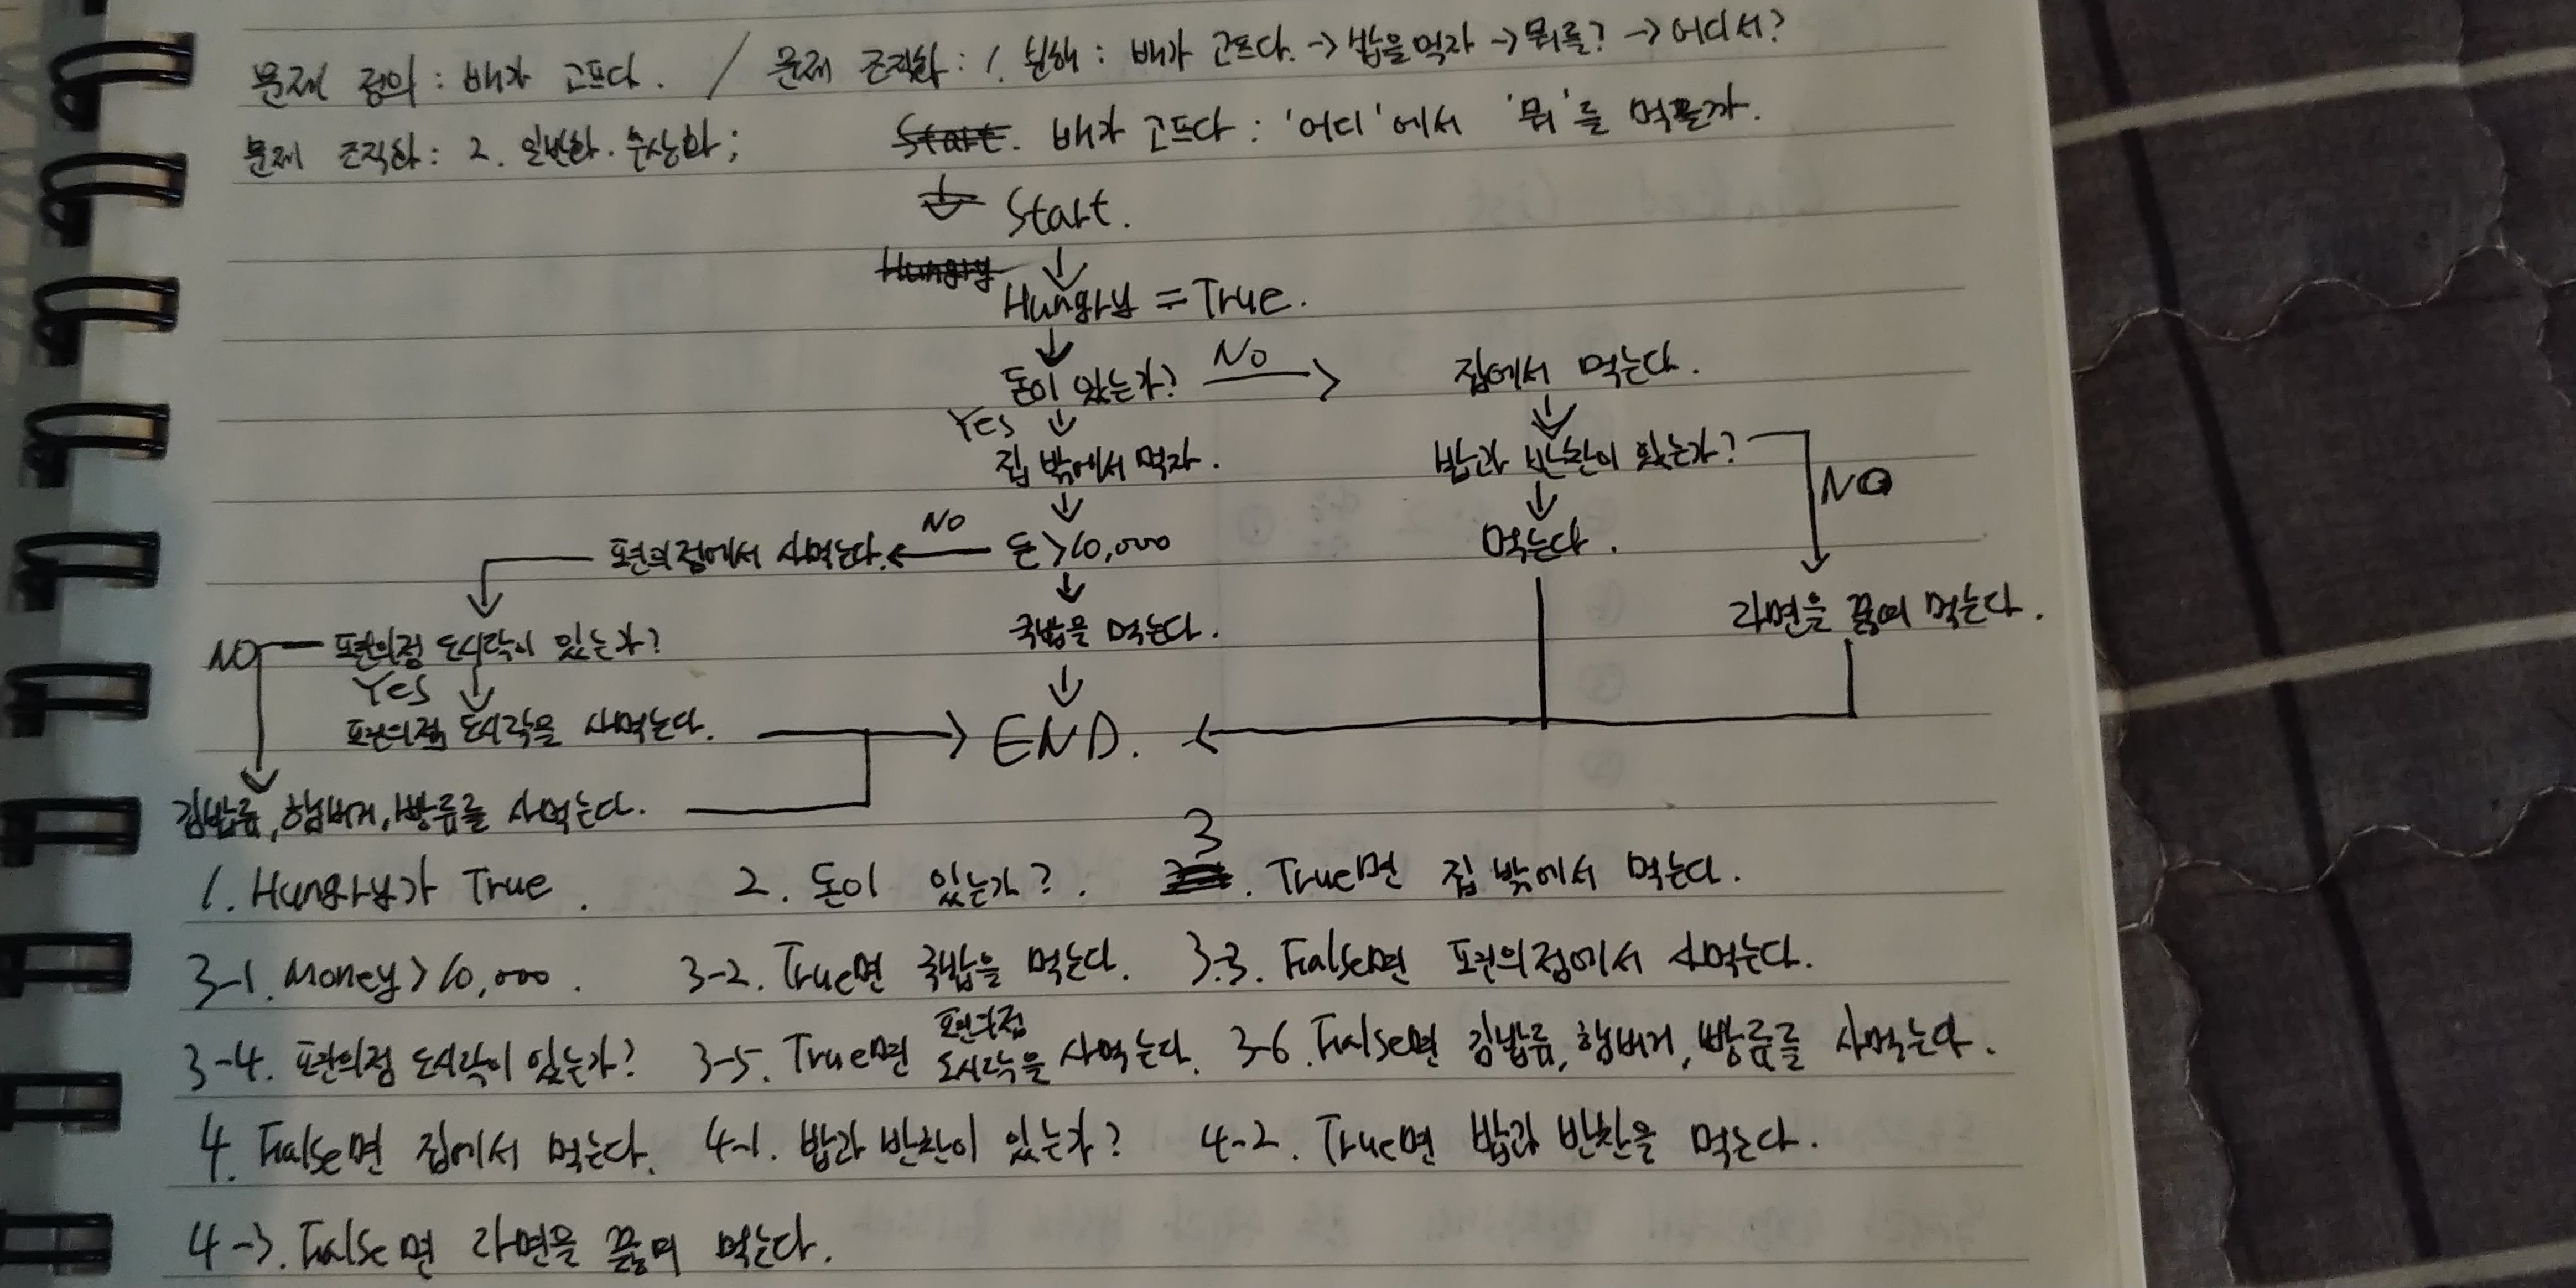 문제 정의 : 배가 고프다. / 문제 조직화 : 1. 분해 : 배가 고프다. → 밥을 먹자 → 뭐를? → 어디서?
문제 조직화 : 2. 일반화. 추상화; Start. 배가 고프다 : '어디'에서 '뭐'를 먹을까.
Start.
Hungry
Hungry = True.
돈이 있는가? No → 집에서 먹는다.
Yes
집 밖에서 먹자. 밥과 반찬이 있는가? NO
편의점에서 사먹는다. ← NO 돈 > 10,000 먹는다.
국밥을 먹는다. 라면을 끓여 먹는다.
NO 편의점 도시락이 있는가?
Yes
편의점 도시락을 사먹는다. → END. ←
김밥류, 햄버거, 빵류를 사먹는다.
1. Hungry가 True. 2. 돈이 있는가?. 3. True면 집 밖에서 먹는다.
3-1. Money > 10,000. 3-2. True면 국밥을 먹는다. 3-3. False면 편의점에서 사먹는다.
3-4. 편의점 도시락이 있는가? 3-5. True면 편의점 도시락을 사먹는다. 3-6. False면 김밥류, 햄버거, 빵류를 사먹는다.
4. False면 집에서 먹는다. 4-1. 밥과 반찬이 있는가? 4-2. True면 밥과 반찬을 먹는다.
4-3. False면 라면을 끓여 먹는다.